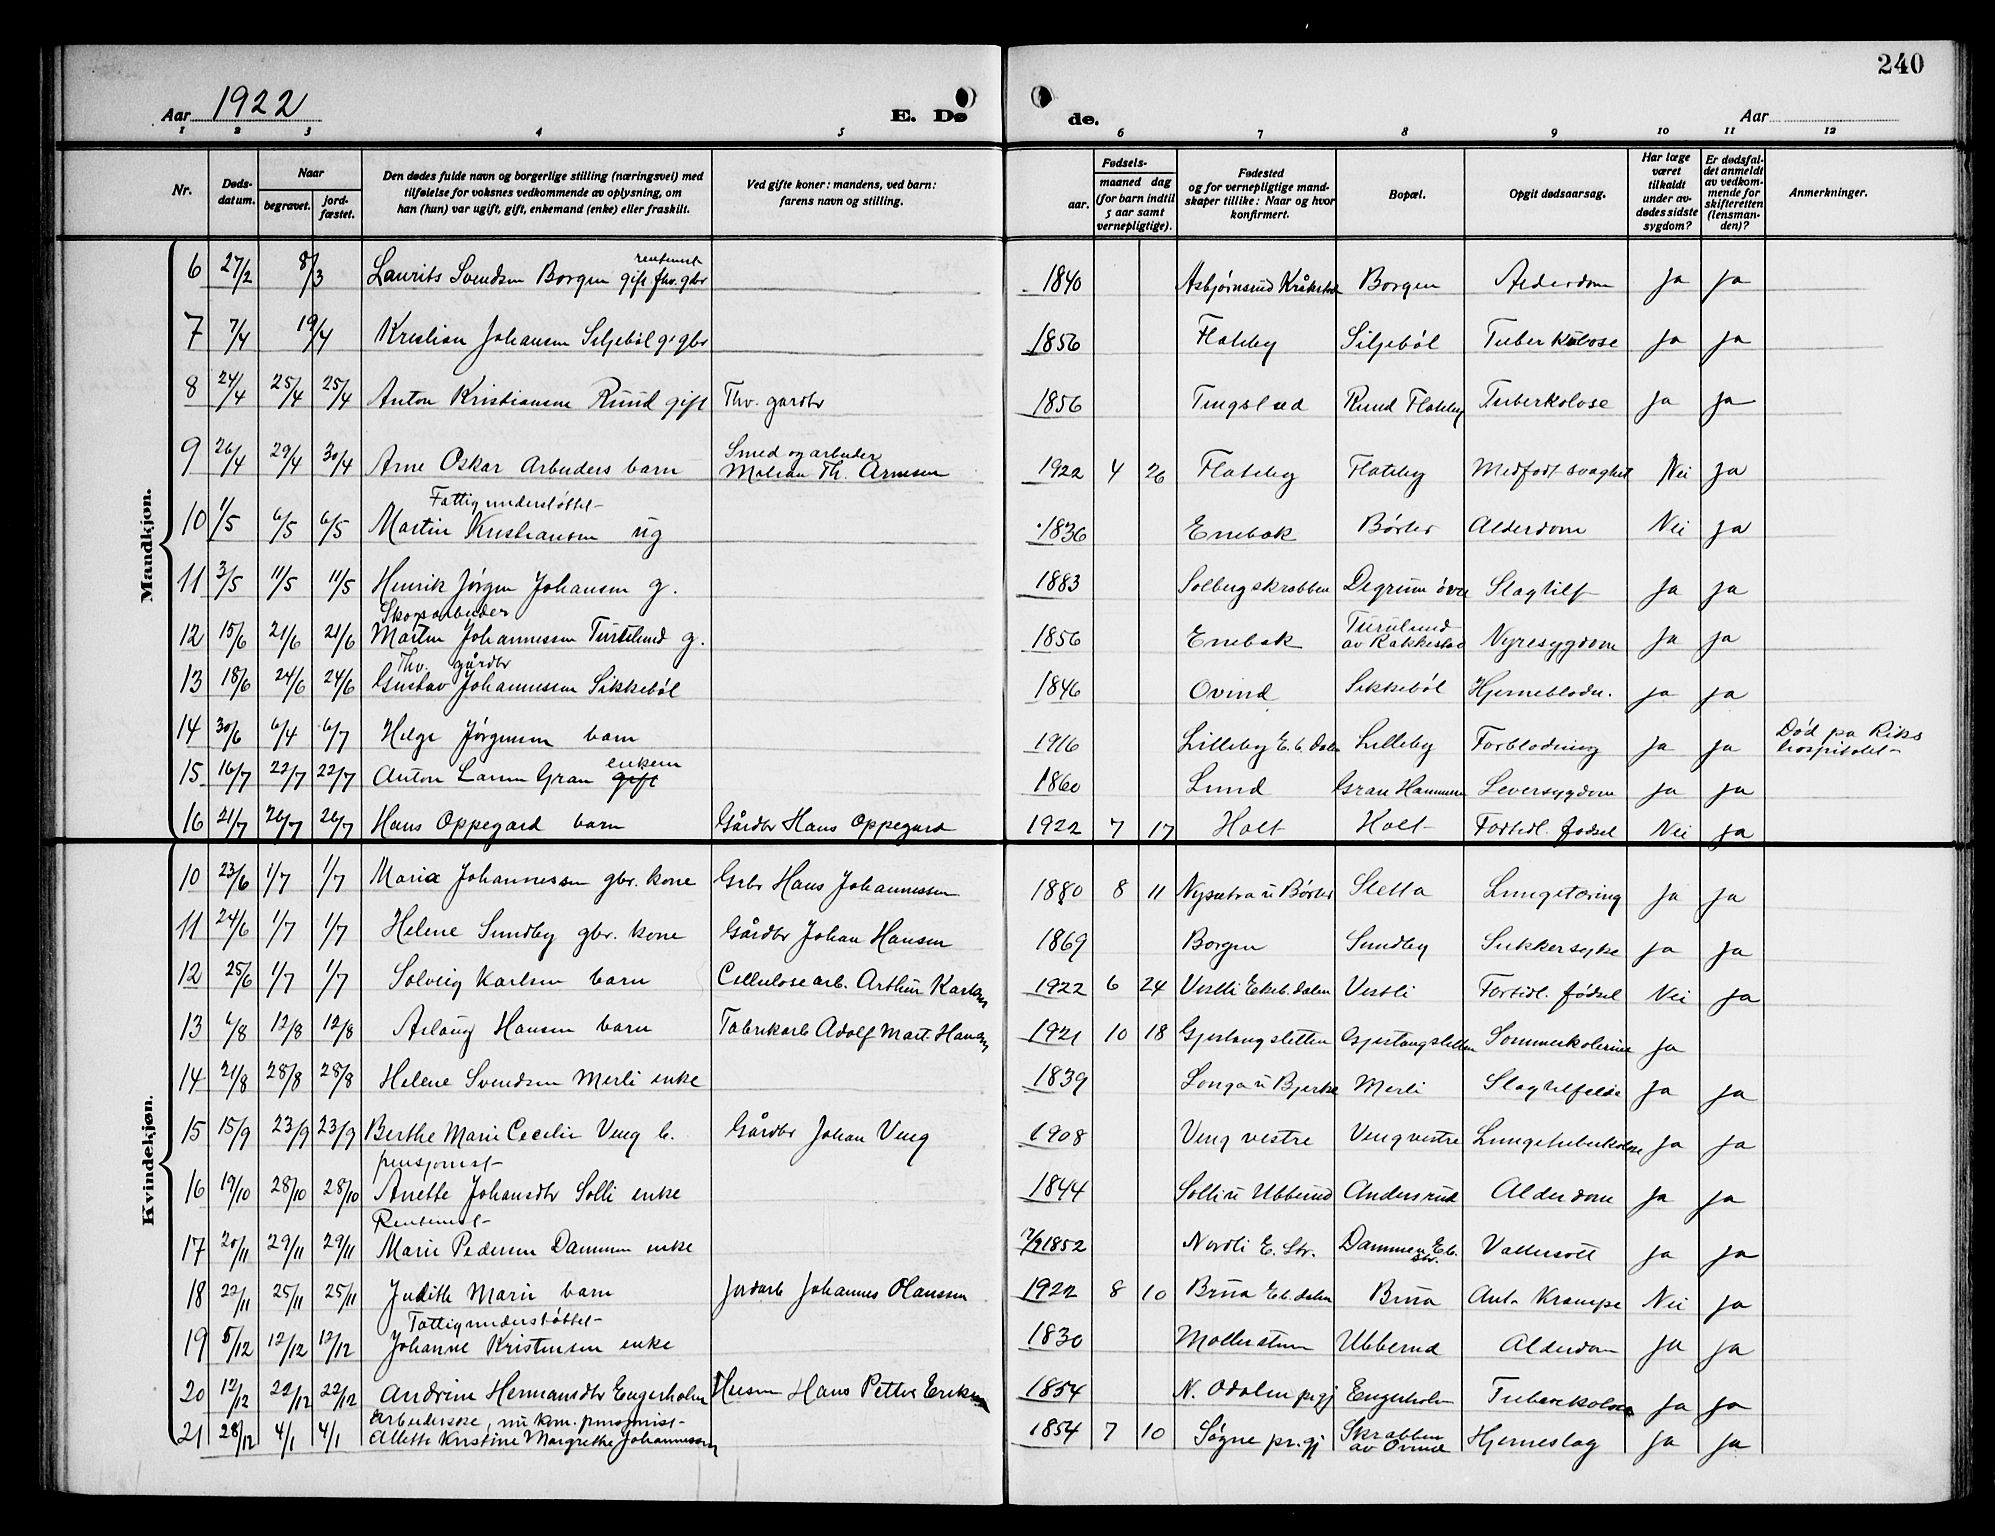 240
Aar 1922
E. Dø
de.
Aar
1 2 3 4 5 6 7 8 9 10 11 12
Nr.
Døds-
datum.
Naar
begravet.
jord-
fæstet.
Den dødes fulde navn og borgerlige stilling (næringsvei) med
tilføielse for voksnes vedkommende av oplysning, om
han (hun) var ugift, gift, enkemand (enke) eller fraskilt.
Ved gifte koner: mandens, ved barn:
farens navn og stilling.
Fødsels-
aar.
maaned dag
(for barn indtil
5 aar samt
vernepligtige).
Fødested
og for vernepligtige mand-
skaper tillike: Naar og hvor
konfirmert.
Bopæl.
Opgit dødsaarsag.
Har læge
været
tilkaldt
under av-
dødes sidste
sygdom?
Er dødsfal-
det anmeldt
av vedkom-
mende for
skifteretten
(lensman-
den)?
Anmerkninger.
Mandkjøn.
rentenist
6 27/2 8/3 Laurits Svendsen Borgen gift fhv. gbr 1840 Asbjørnsrud Kråkstad Borgen Alderdom Ja Ja
7 7/4 19/4 Kristian Johansen Siljebøl g. gbr 1856 Flateby Siljebøl Tuberkulose Ja Ja
8 24/4 25/4 25/4 Anton Kristiansen Ruud gift Fhv. gardbr 1856 Tingstad Ruud Flateby Tuberkolose Ja Ja
Smed og arbeider
9 26/4 29/4 30/4 Arne Oskar Arbeiders barn Th. Arnesen 1922 4 26 Flateby Flateby Medfødt svaghet Nei Ja
Fattigunderstøttet
10 1/5 6/5 6/5 Martin Kristiansen ug 1836 Enebak Børter Alderdom Nei Ja
11 3/5 11/5 11/5 Henrik Jørgen Johansen g. 1883 Solbergskrabben Degrum øvre Slagtilf Ja Ja
Skogsarbeider
12 15/6 21/6 21/6 Martin Johannessen g. 1856 Enebak av Rakkestad Nyresygdom Ja Ja
Fhv. gårdbr
13 18/6 24/6 24/6 Gustav Johannessen Sikkebøl 1846 Ovind Sikkebøl Hjerneblødn. Ja Ja
14 30/6 6/4 6/7 Helge Jørgensen barn 1916 Lilleby E.b. dalen Lilleby Forblødning Ja Ja Død pa Riks
hospitalet
enkem
15 16/7 22/7 22/7 Anton Larsen Gran gift 1860 Lund Gran Hammeren Leversygdom Ja Ja
16 21/7 26/7 26/7 Hans Oppegard barn Gårdbr Hans Oppegard 1922 7 17 Holt Holt Fortidl. fødsel Nei Ja
Kvindekjøn.
10 23/6 1/7 1/7 Maria Johannessen gbr. kone Grbr Hans Johannessen 1880 8 11 Nysætra u Børter Sletta Lungetæring Ja Ja
11 24/6 1/7 1/7 Helene Sundby gbr. kone Gårdbr Johan Hansen 1869 Borgen Sundby Sukkersyke Ja Ja
12 25/6 1/7 1/7 Solveig Karlsen barn Cellulosearb. Arthur Karlsen 1922 6 24 Vestli Ekeb. dalen Vestli Fortidl. fødsel Nei Ja
13 6/8 12/8 12/8 Aslaug Hansen barn Fabrikarb Adolf Mart. Hansen 1921 10 18 Gjestangsletten Gjestangsletten Sommerkolerine Ja
14 21/8 28/8 28/8 Helene Svendsen Merli enke 1839 Longa u Bjerke Merli Slagtilfelde Ja Ja
15 15/9 23/9 23/9 Berthe Marie Cecilie Veng b. Gårdbr Johan Veng 1908 Veng vestre Veng vestre Lungetuberkolose Ja Ja
pensjonist
16 19/10 28/10 28/10 Anette Johansdtr Solli enke 1844 Solli u Ubberud Andersrud Alderdom Ja Ja
Rentenist
17 20/11 29/11 29/11 Marie Pedersen Dammen enke 7/9 1852 Nordli E. Str. Dammen Eb.
Str. Vattersott Ja Ja
18 22/11 25/11 25/11 Judith Marie barn Jordarb Johannes Olanssen 1922 8 10 Brua Eb. dalen Brua Ant. Krampe Nei Ja
Fattigunderstøttet
19 5/12 12/12 12/12 Johanne Kristensen enke 1830 Møllerstuen Ubberud Alderdom Ja Ja
20 12/12 22/12 22/12 Andrine Hermansdtr Engerholm Husm Hans Petter Eriksen 1854 N. Odalen prgj Engerholm Tuberkolose Ja Ja
Arbeiderske, nu kom. pensjonist
21 28/12 4/1 4/1 Alette Kristine Margrethe Johannessen 1854 7 10 Søgne pr.gj Skrabben
av Ovind Hjerneslag Ja Ja